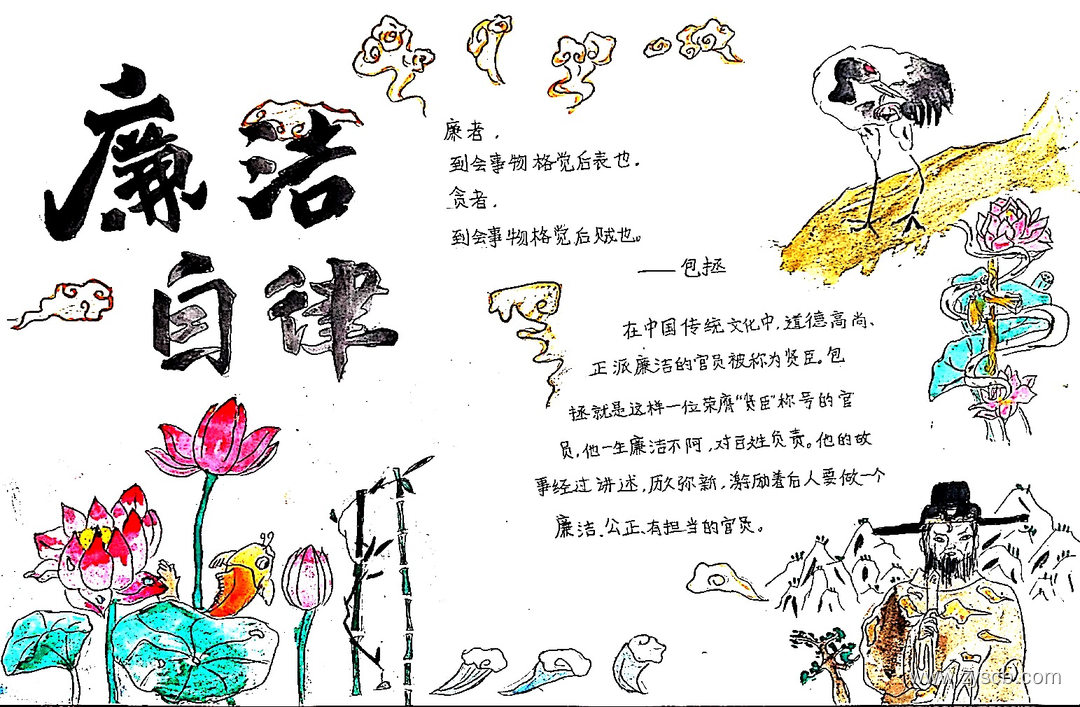 廉洁
自律
廉者，
到会事物格党后表也。
贪者，
到会事物格党后贼也。
——包拯
在中国传统文化中，道德高尚、
正派廉洁的官员被称为贤臣。包
拯就是这样一位荣膺“贤臣”称号的官
员，他一生廉洁不阿，对百姓负责。他的故
事经过讲述，历久弥新，激励着后人要做一个
廉洁、公正、有担当的官员。
www.zyscb.com